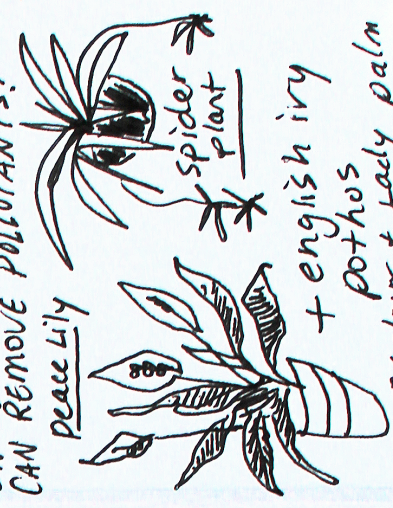 CAN REMOVE POLLUTANTS!
peace Lily
spider
plant
+ english ivy
pothos
+ Lady palm